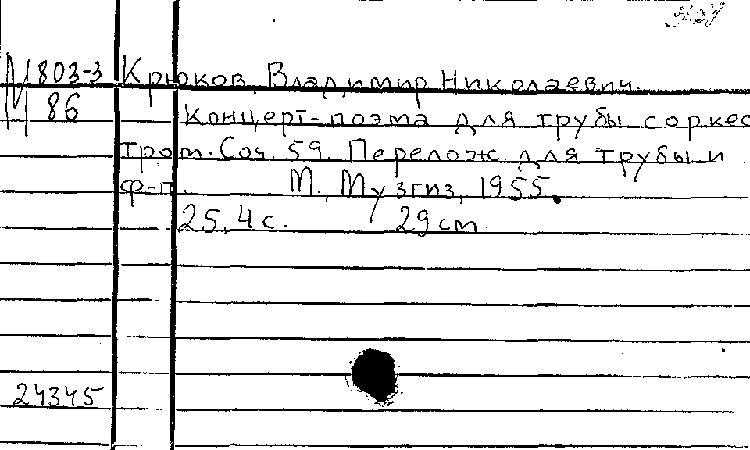 М803-3 Крюков, Владимир Николаевич.
86 Концерт-поэма для трубы с оркес
тром. Соч. 59. Перелож для трубы и
ф-п. М. Музгиз, 1955.
25,4 с. 29 cm
24345